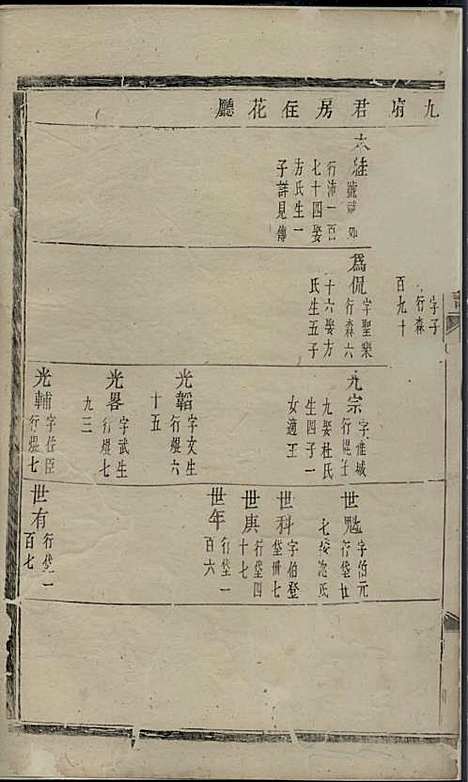 九府君房在花廳
字子
行森
百九十
行沛一百
七十四娶
方氏生一
子詳見傳
為侃
字聖樂
行森六
十六娶方
氏生五子
光宗
字惟城
九娶杜氏
生四子一
女適王
光韜
字文生
行焜六
十五
光畧
字武生
行焜七
九三
光輔
字佐臣
行焜七
世魁
字伯元
行垈廿
世科
字伯登
行垈卅七
世庚
行垈四
十七
世年
行垈一
百六
世有
行垈一
百七